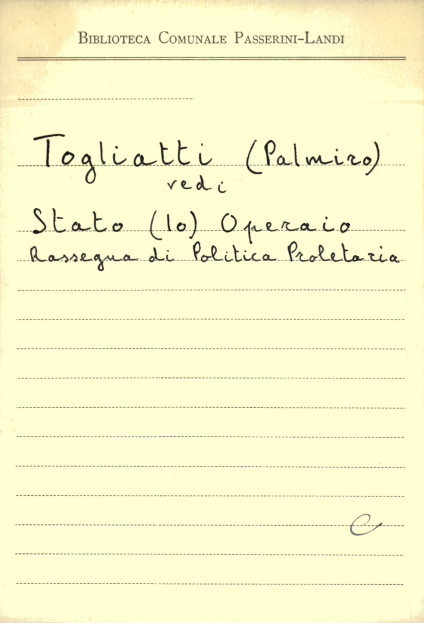 BIBLIOTECA COMUNALE PASSERINI-LANDI
Togliatti (Palmiro)
vedi
Stato (lo) Operaio
Rassegna di Politica Proletaria
C